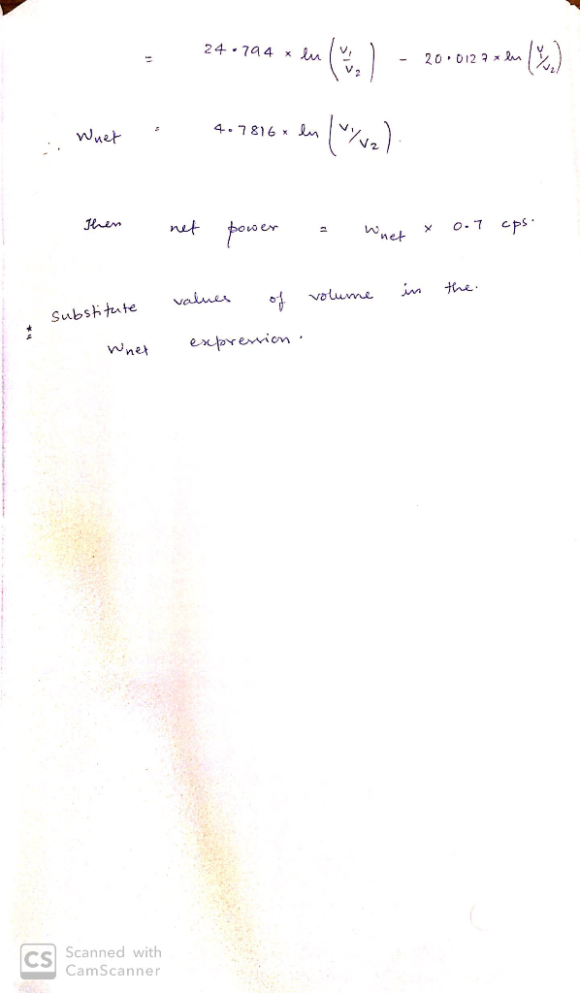 = 24.794 × ln (V₁/V₂) - 20.0127 × ln (V₁/V₂)
∴ Wnet = 4.7816 × ln (V₁/V₂).
Then net power = Wnet × 0.7 cps.
* Substitute values of volume in the.
Wnet expression.
CS Scanned with
CamScanner